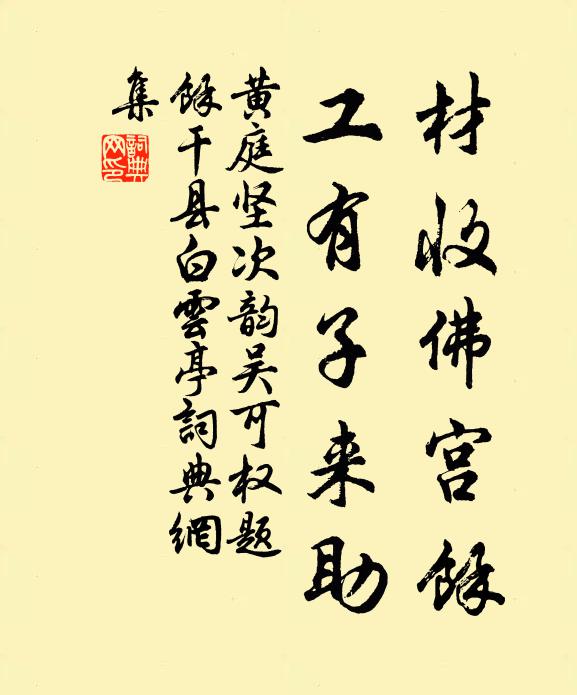 材收佛宫馀
工有子来助
黄庭坚次韵吴可权题
馀干县白雲亭詞典網
集
詞典网印